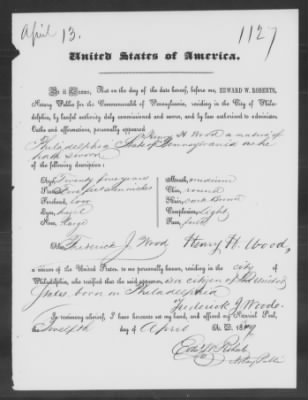 April 13.
1127
United States of America.
Be it Known, That on the day of the date hereof, before me, EDWARD W. ROBERTS,
Notary Public for the Commonwealth of Pennsylvania, residing in the City of Phila-
delphia, by lawful authority duly commissioned and sworn, and by law authorized to administer
Oaths and affirmations, personally appeared Henry H Wood a native of
Philadelphia State of Pennsylvania who
hath sworn
of the following description:
Age, Twenty five years Mouth, medium
Stature, Five feet Chin, round
Forehead, low Hair, dark Brown
Eyes, hazel Complexion, light
Nose, large Face, full
Also Frederick J. Wood Henry H. Wood,
a citizen of the United States, to me personally known, residing in the city
of Philadelphia, who testified that the said a citizen of the United
States, born in Philadelphia
Frederick J. Wood
In testimony whereof, I have hereunto set my hand, and affixed my Notarial Seal, this
Twelfth day of April A. D.
Edw. W. Roberts
Notary Public